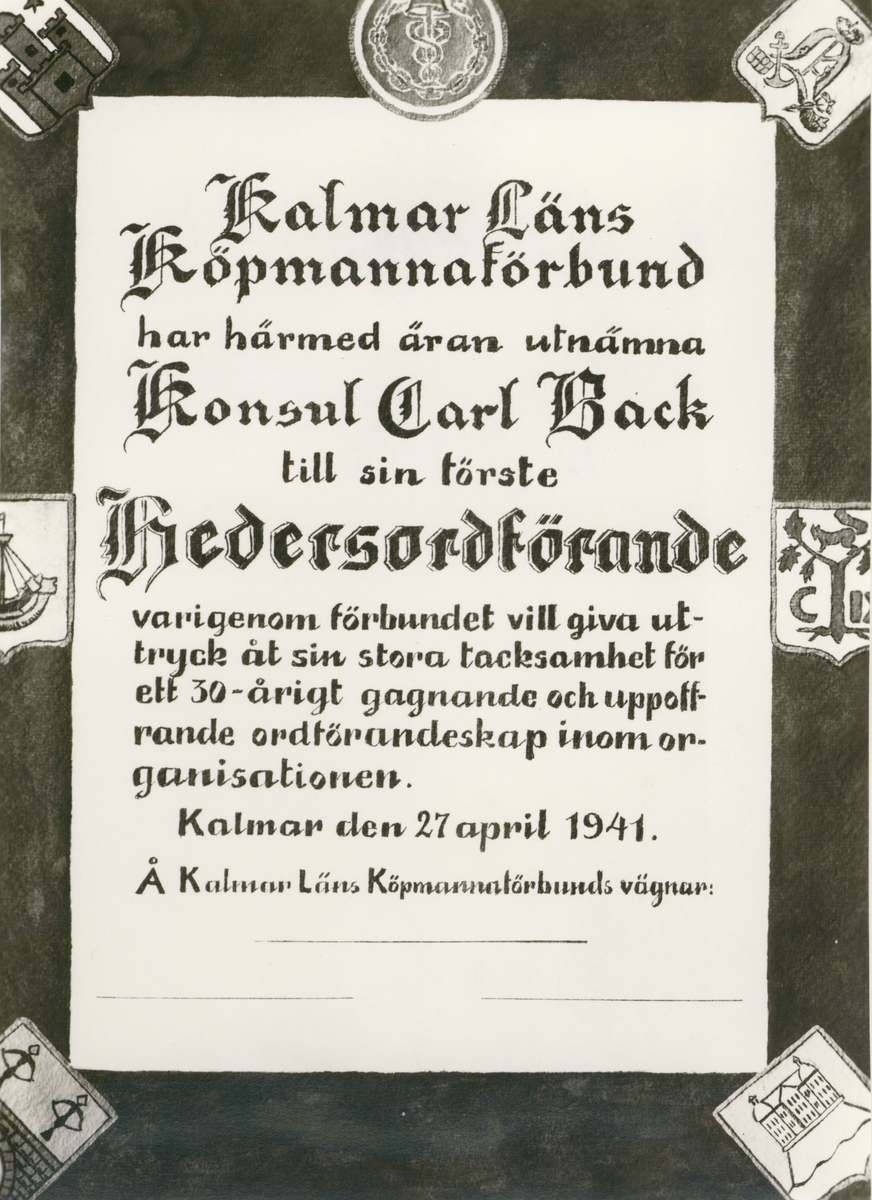 Kalmar Läns
Köpmannaförbund
har härmed äran utnämna
Konsul Carl Back
till sin förste
Hedersordförande
varigenom förbundet vill giva ut-
tryck åt sin stora tacksamhet för
ett 30-årigt gagnande och uppoff-
rande ordförandeskap inom or-
ganisationen.
Kalmar den 27 april 1941.
Å Kalmar Läns Köpmannaförbunds vägnar:
C IX